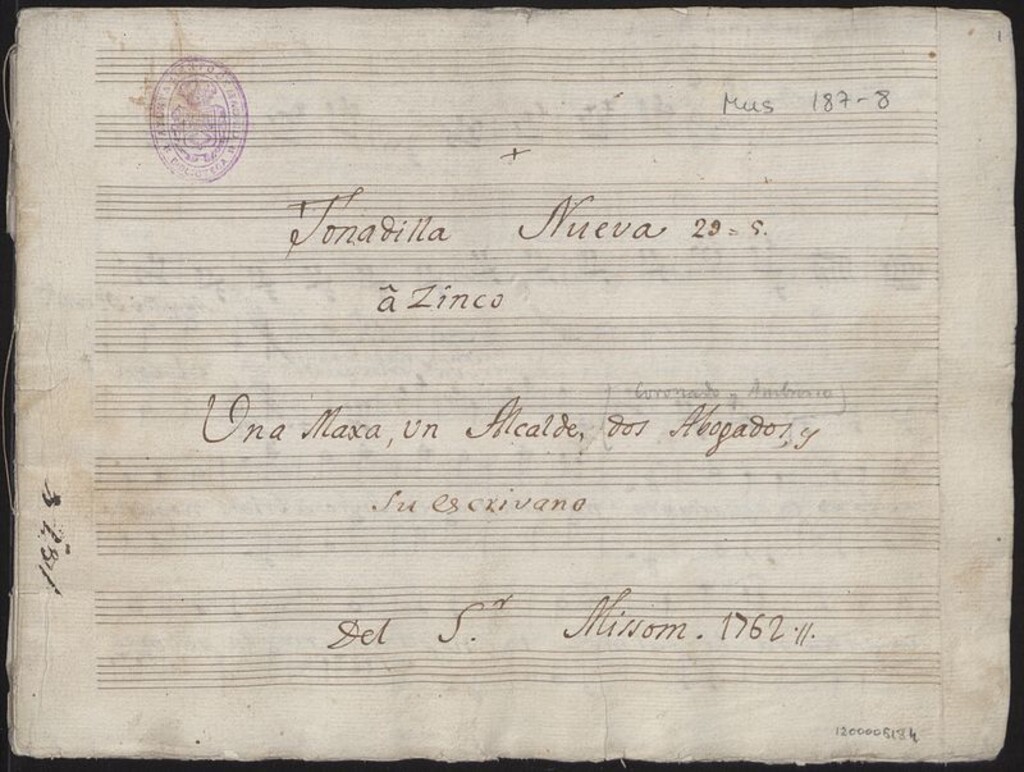 1
Mus 187-8
+
Tonadilla Nueva 29=5.
â Zinco
(Coronado y Ambrosio)
Una Maxa, un Alcalde, dos Abogados, y
su escrivano
Del S.r Missom. 1762.//.
1200005184